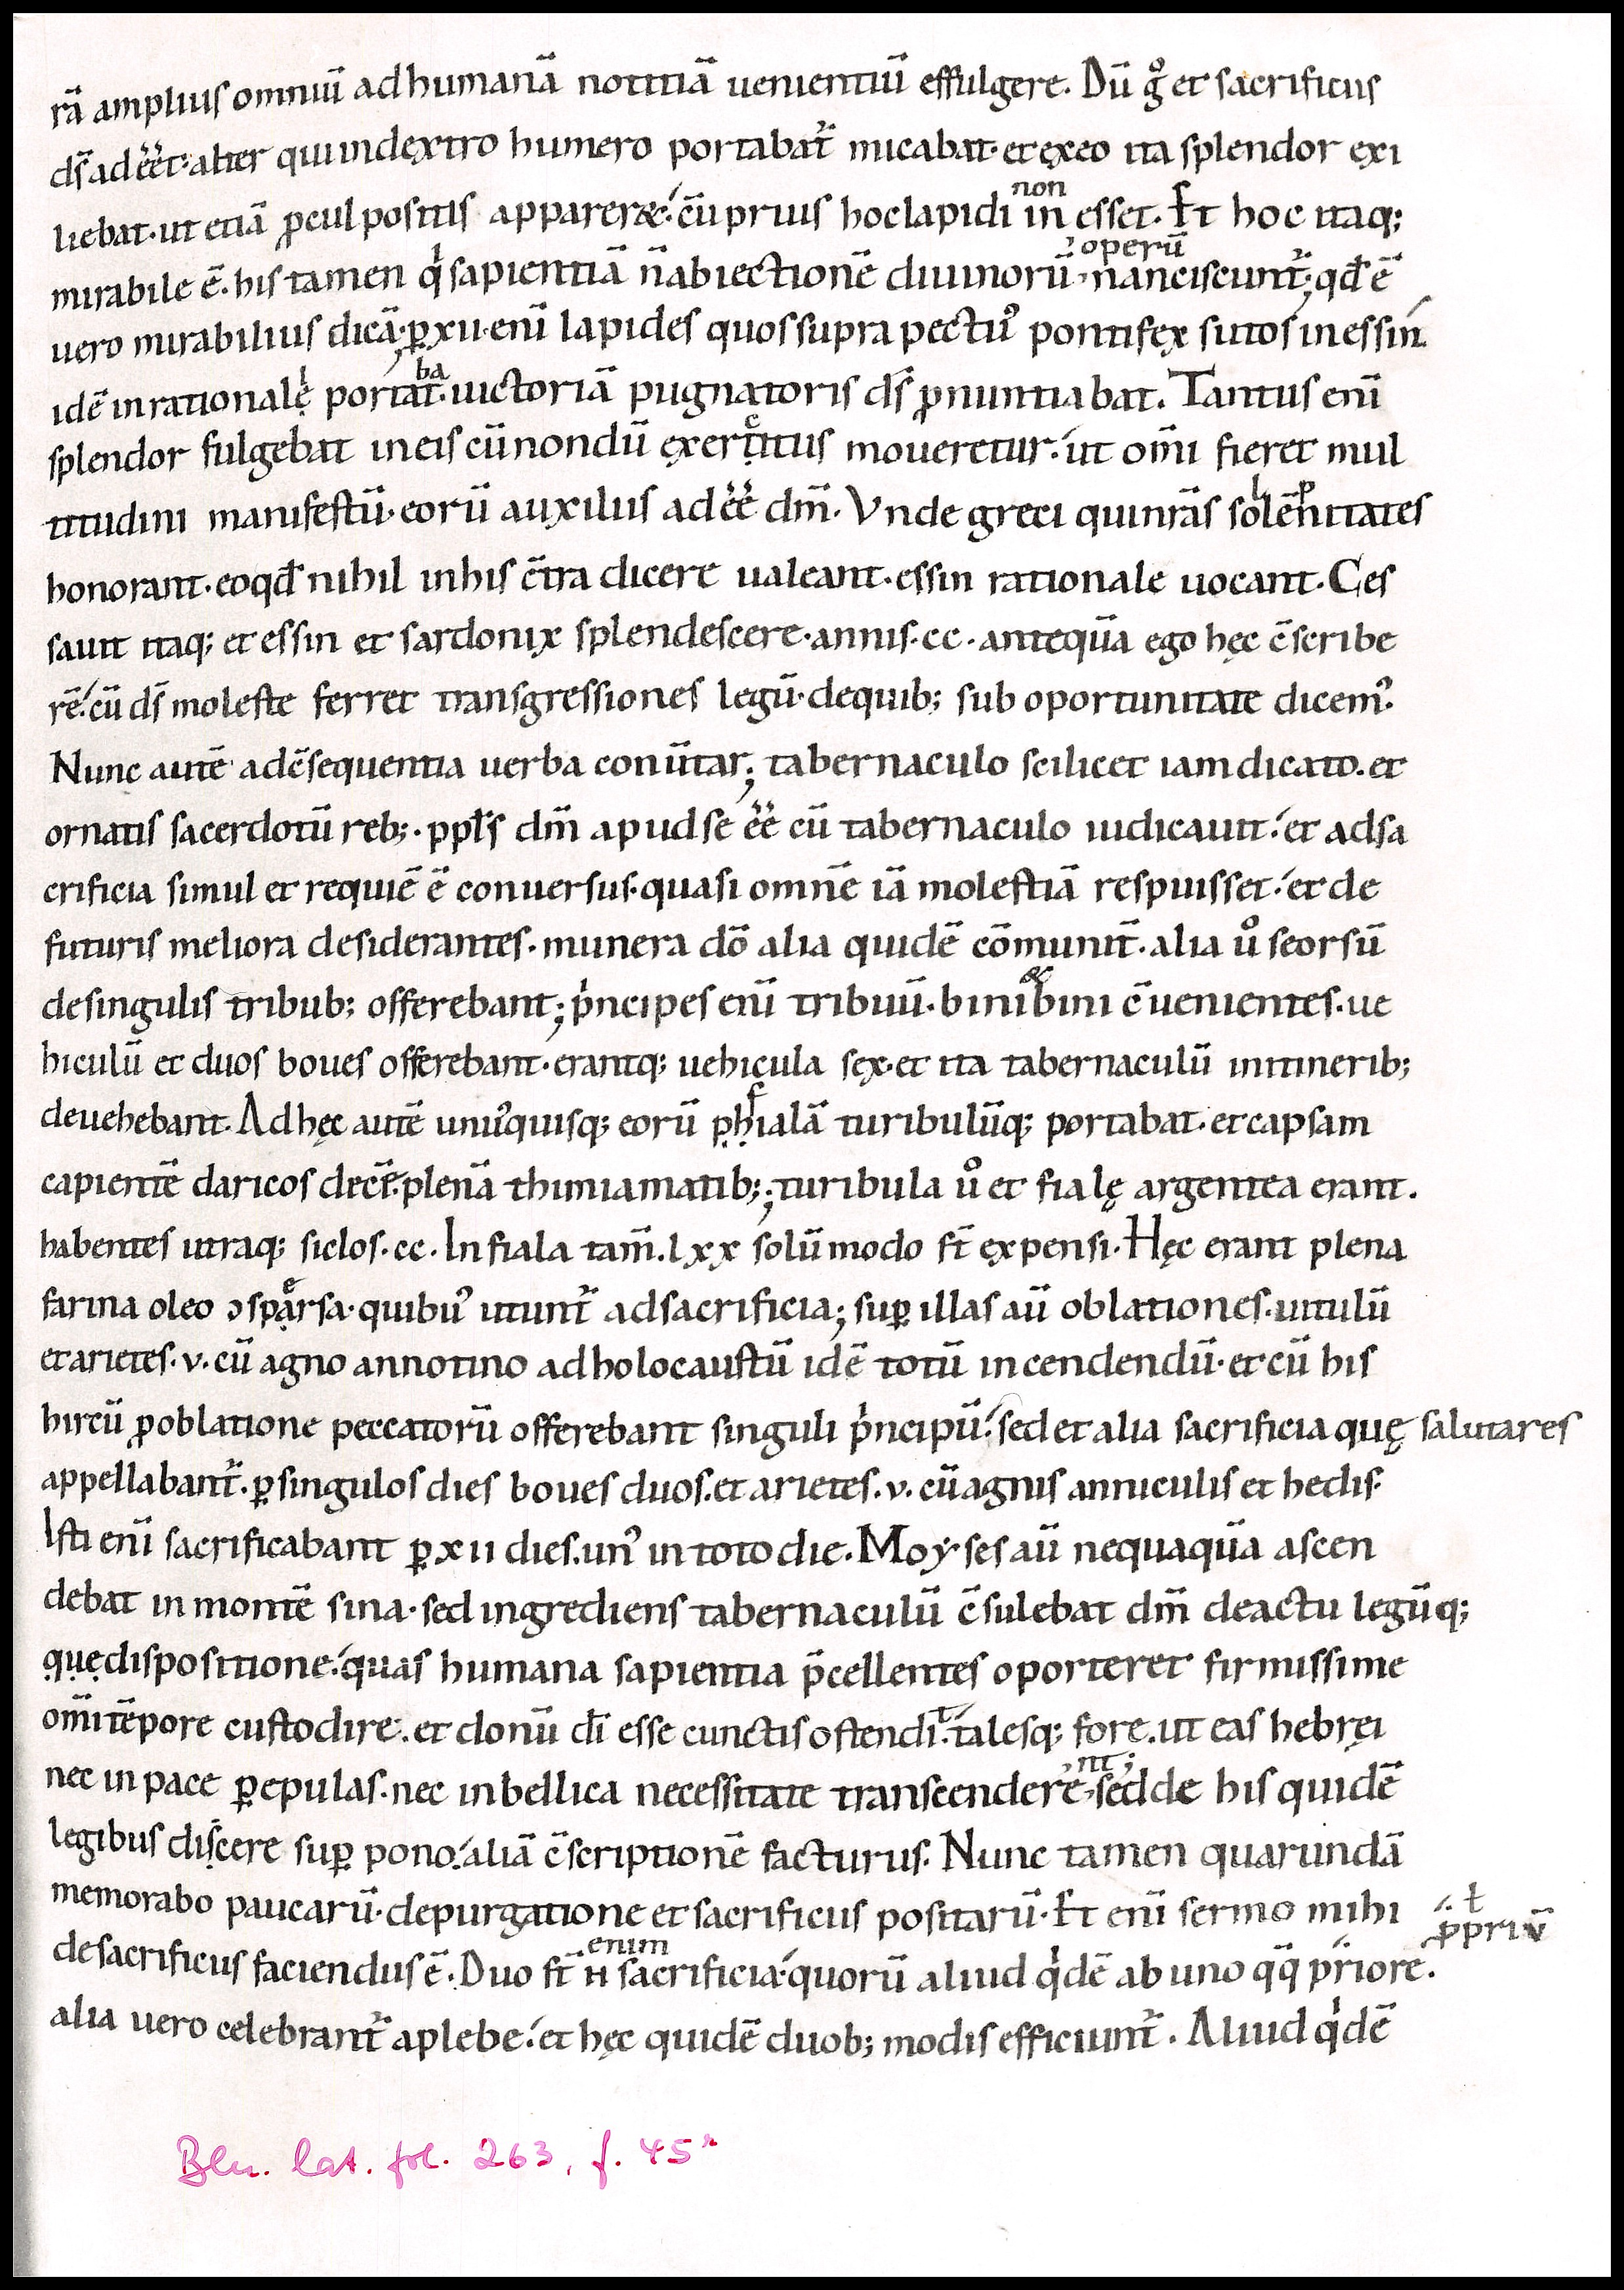 rā amplius omniū ad humanā notitiā uenientiū effulgere. Dū g̊ et sacrificiis
ds̄ adēēt· alter qui indextro humero portabat᷑ micabat· et ęxeo ita splendor exi
liebat· ut etiā ꝓcul positis apparere&· cū prius hoc lapidi in esset. Et hoc itaq;
non
mirabile ē. his tamen qͥ sapientiā n̄ abiectionē diuinorū· nanciscunt᷑; qd̄ ē
operū
uero mirabilius dicā· ꝑ xii· enī lapides quos supra pectus᾽ pontifex sutos in essin
idē in rationalę portat· uictoriā pugnatoris ds̄ ꝓnuntiabat. Tantus enī
ba
splendor fulgebat in eis cū nondū ęxertitus moueretur· ut om̄i fieret mul
c
titudini manifestū· eorū auxiliis adēē dm̄. Vnde greci quinr̄as solēnitates
l p
honorant· eo qd̄ nihil in his c̄tra dicere ualeant· essin rationale uocant. Ces
sauit itaq; et essin et sardonix splendescere· annis· cc· antequā ego hęc c̄scribe
rē· cū ds̄ moleste ferret transgressiones legū· de quib; sub oportunitate dicem᾽.
Nunc autē adc̄sequentia uerba conūtar; tabernaculo scilicet iam dicato. et
ornatis sacerdotū reb;. ppl̄s dm̄ apud se ēē cū tabernaculo iudicauit· et ad sa
crificia simul et requiē ē conuersus· quasi omnē iā molestiā respuisset· et de
futuris meliora desiderantes· munera dō alia quidē cōmunit̄· alia ů seorsū
de singulis tribub; offerebant; pͥncipes enī tribuū· bini bini c̄uenientes· ue
&
hiculū et duos boues offerebant· erantq; uehicula sęx· et ita tabernaculū in itinerib;
deuehebant. Ad hęc autē unus᾽quisq; eorū phialā turibulūq; portabat· et capsam
f
capientē daricos dec̄ē· plenā thimiamatib;; turibula ů et fialę argentea erant.
habentes utraq; siclos· cc· In fiala tam̄· lxx solūmodo st̄ ęxpensi. Hęc erant plena
farina oleo ɔsparsa· quibus᾽ utunt᷑ ad sacrificia; suꝑ illas aū oblationes· uitulū
e
et arietes· v· cū agno annotino ad holocaustū idē totū incendendū· et cū his
hircū ꝓ oblatione peccatorū offerebant singuli pͥncipū· sed et alia sacrificia quę salutares
appellabant᷑. ꝑ singulos dies boues duos· et arietes· v· cū agnis anniculis et hedis·
Isti enī sacrificabant ꝑ xii dies· un᾽ in toto die. Moyses aū nequaquā ascen
debat in montē sina· sed ingrediens tabernaculū c̄sulebat dm̄ de actu legūq;
quędispositione· quas humana sapientia p̄cellentes oporteret firmissime
om̄i tēpore custodire· et donū dī esse cunctis ostendi· talesq; fore. ut eas hebręi
t
nec in pace ꝑ epulas· nec in bellica necessitate transcenderē· sed de his quidē
nt;
legibus discere suꝑ pono· aliā c̄scriptionē facturus. Nunc tamen quarundā
memorabo paucarū· de purgatione et sacrificiis positarū. Et enī sermo mihi
de sacrificiis faciendus ē. Duo st̄ н sacrificia· quorū aliud qͥdē ab uno qͣq̄ priore.
enim
ł ꝓpriū
alia uero celebrant᷑ a plebe· et hęc quidē duob; modis efficiunt᷑. Aliud qͥdē
Bln. lat. fol. 263, f. 45ʳ